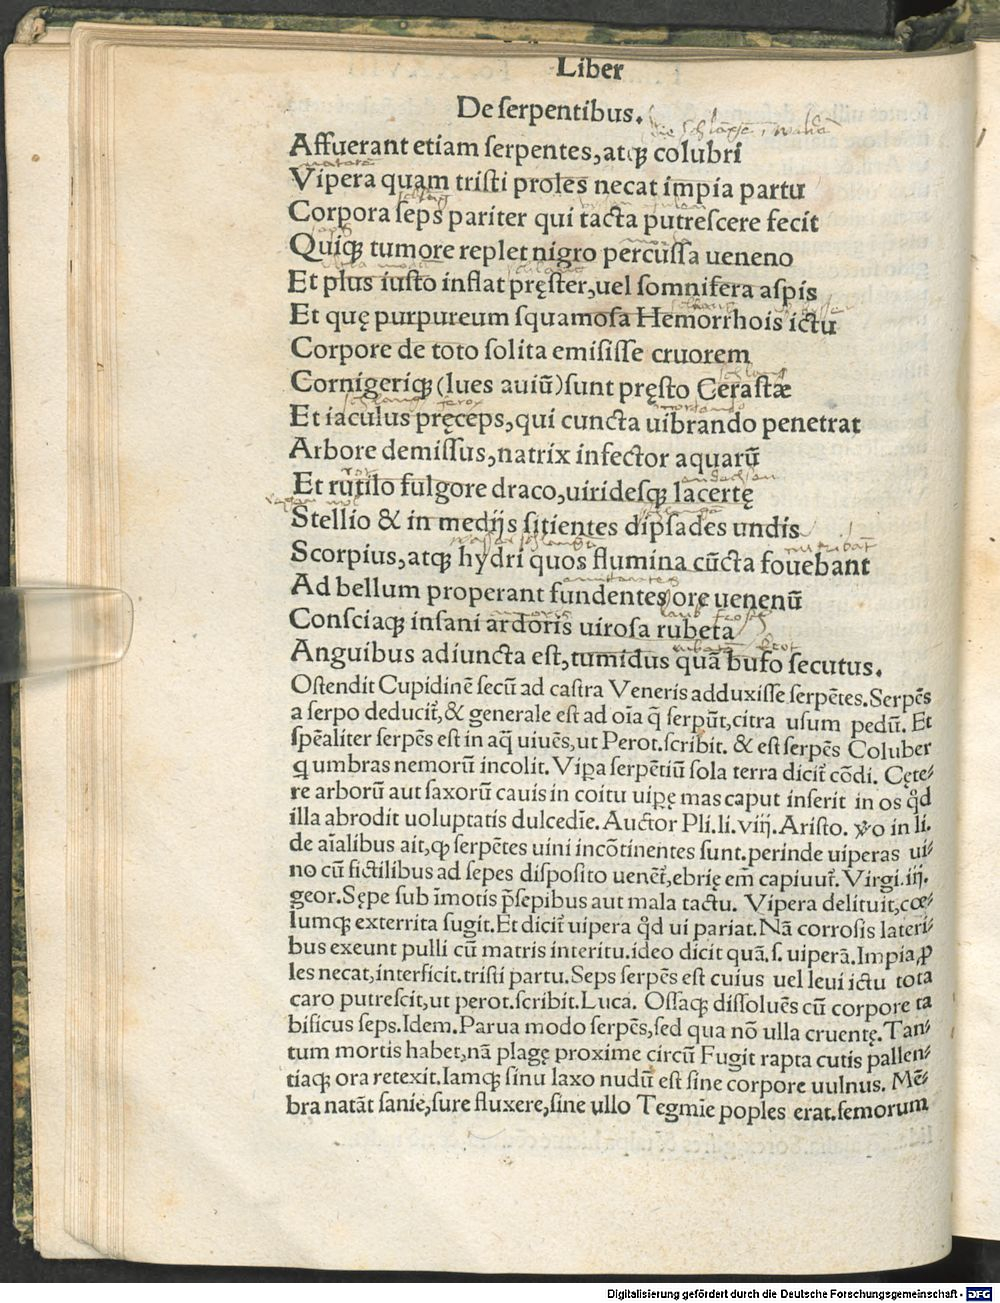 Liber
De serpentibus.
Affuerant etiam serpentes, atqꝫ colubri
Vipera quam tristi proles necat impia partu
Corpora seps pariter qui tacta putrescere fecit
Quiqꝫ tumore replet nigro percussa ueneno
Et plus iusto inflat pręster, uel somnifera aspis
Et quę purpureum squamosa Hemorrhois ictu
Corpore de toto solita emisisse cruorem
Cornigeriqꝫ (lues auiū) sunt pręsto Cerastæ
Et iaculus pręceps, qui cuncta uibrando penetrat
Arbore demissus, natrix infector aquarū
Et rutilo fulgore draco, uiridesqꝫ lacertę
Stellio & in medijs sitientes dipsades undis
Scorpius, atqꝫ hydri quos flumina cūcta fouebant
Ad bellum properant fundentes ore uenenū
Consciaqꝫ insani ardoris uirosa rubeta
Anguibus adiuncta est, tumidus quā bufo secutus.
Ostendit Cupidinē secū ad castra Veneris adduxisse serpētes. Serpēs
a serpo deducit̄, & generale est ad oīa q̄ serpūt, citra usum pedū. Et
spēaliter serpēs est in aq̄ uiuēs, ut Perot. scribit. & est serpēs Coluber
q umbras nemorū incolit. Vipa serpētiū sola terra dicit̄ cōdi. Cęte⸗
re arborū aut saxorū cauis in coitu uipę mas caput inserit in os qd̄
illa abrodit uoluptatis dulcedīe. Auctor Pli. li. viij. Aristo. ꝟo in li.
de aīalibus ait, ꝙ serpētes uini incōtinentes sunt. perinde uiperas ui⸗
no cū fictilibus ad sepes disposito uenēt̄, ebrię em̄ capiuut̄. Virgi. iij.
geor. Sępe sub īmotis p̄sepibus aut mala tactu. Vipera delituit, cœ⸗
lumqꝫ exterrita fugit. Et dicit̄ uipera qd̄ ui pariat. Nā corrosis lateri⸗
bus exeunt pulli cū matris interitu. ideo dicit quā. s. uiperā. Impia, ꝓ
les necat, interficit. tristi partu. Seps serpēs est cuius uel leui ictu tota
caro putrescit, ut perot. scribit. Luca. Ossaqꝫ dissoluēs cū corpore ta
bificus seps. Idem. Parua modo serpēs, sed qua nō ulla cruentę. Tan⸗
tum mortis habet, nā plagę proxime circū Fugit rapta cutis pallen⸗
tiaqꝫ ora retexit. Iamqꝫ sinu laxo nudū est sine corpore uulnus. Mē⸗
bra natāt sanie, sure fluxere, sine ullo Tegmīe poples erat. femorum
Digitalisierung gefördert durch die Deutsche Forschungsgemeinschaft - DFG